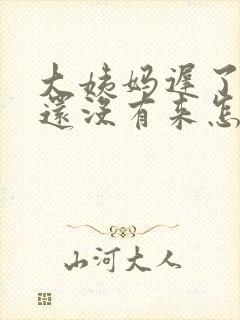 大姨妈遅了
還没有来怎
山河大人